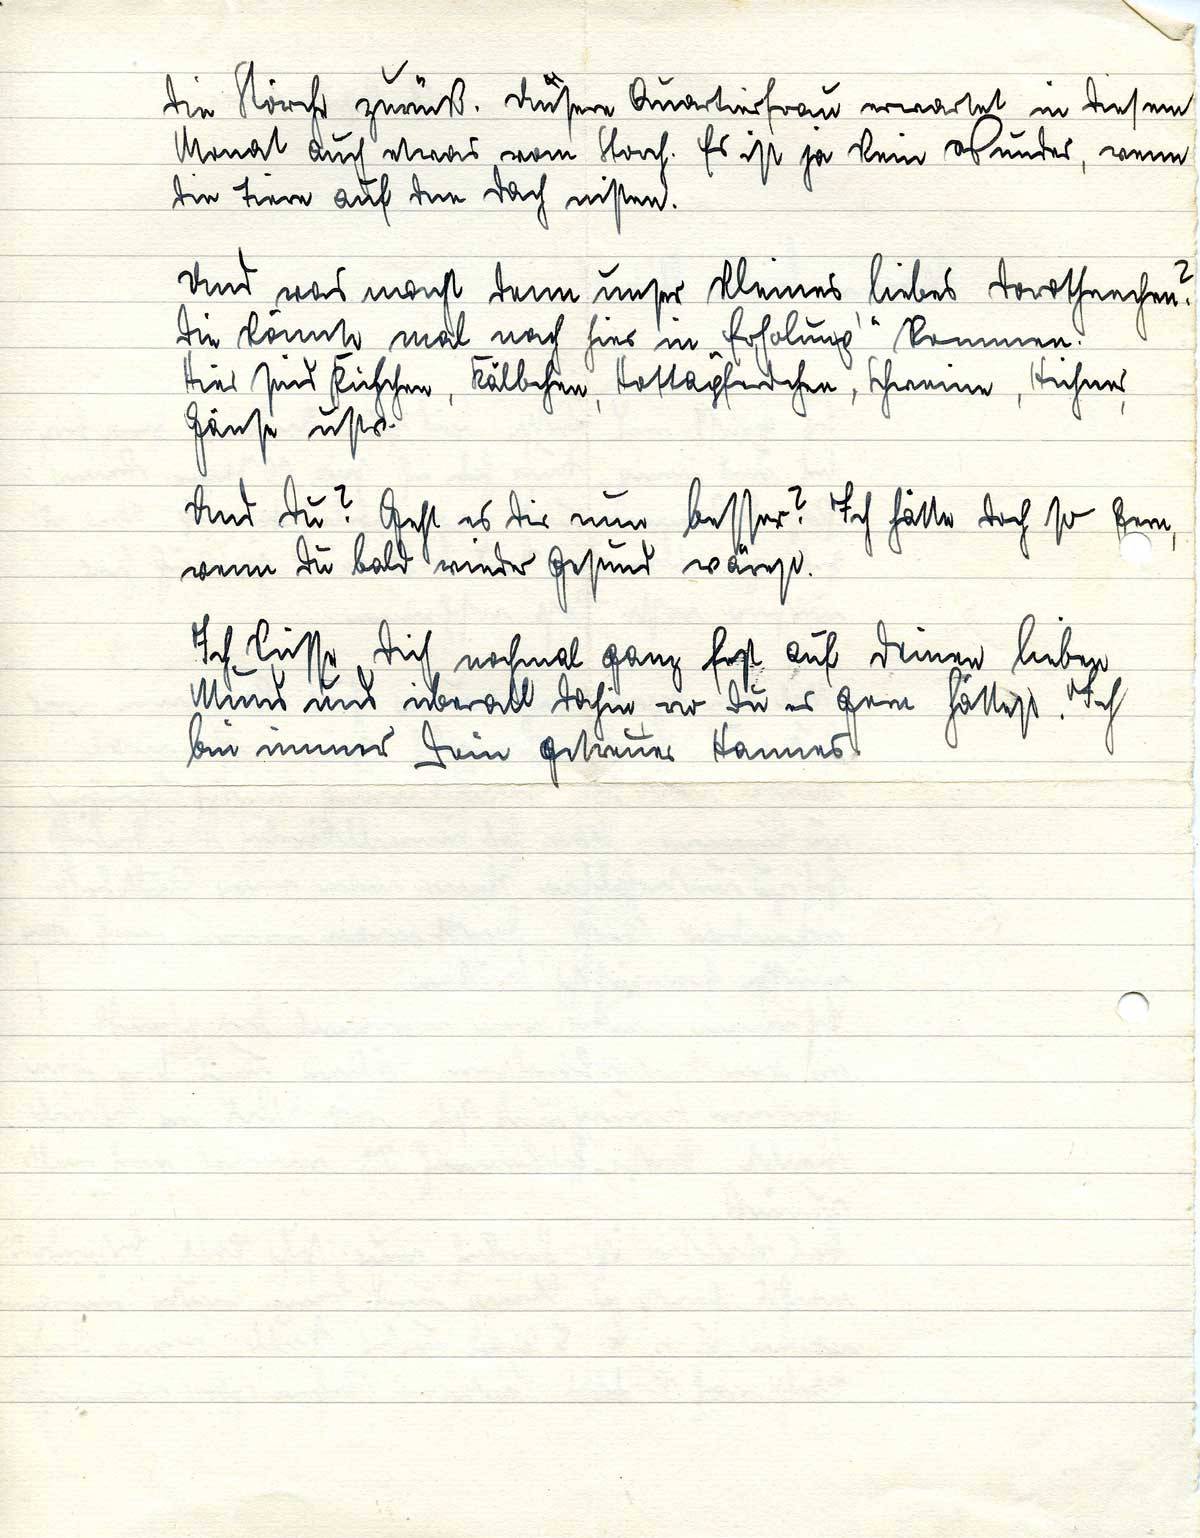 die Störche zurück. Unsere Quartierfrau erwartet in diesem
Monat auch etwas vom Storch. Es ist ja kein Wunder, wenn
die Tiere auf dem Dach nisten.
Und was macht denn unser kleines liebes Dorotheechen?
Die könnte mal nach hier in „Erholung“ kommen.
Hier sind Kühchen, Kälbchen, Hottapferdchen, Schweine, Hühner,
Gänse usw.
Und Du? Geht es Dir nun besser? Ich hätte doch so gern,
wenn Du bald wieder gesund wärest.
Ich küsse Dich nochmal ganz fest auf Deinen lieben
Mund und überall dahin, wo Du es gern hättest. Ich
bin immer Dein getreuer Hannes.